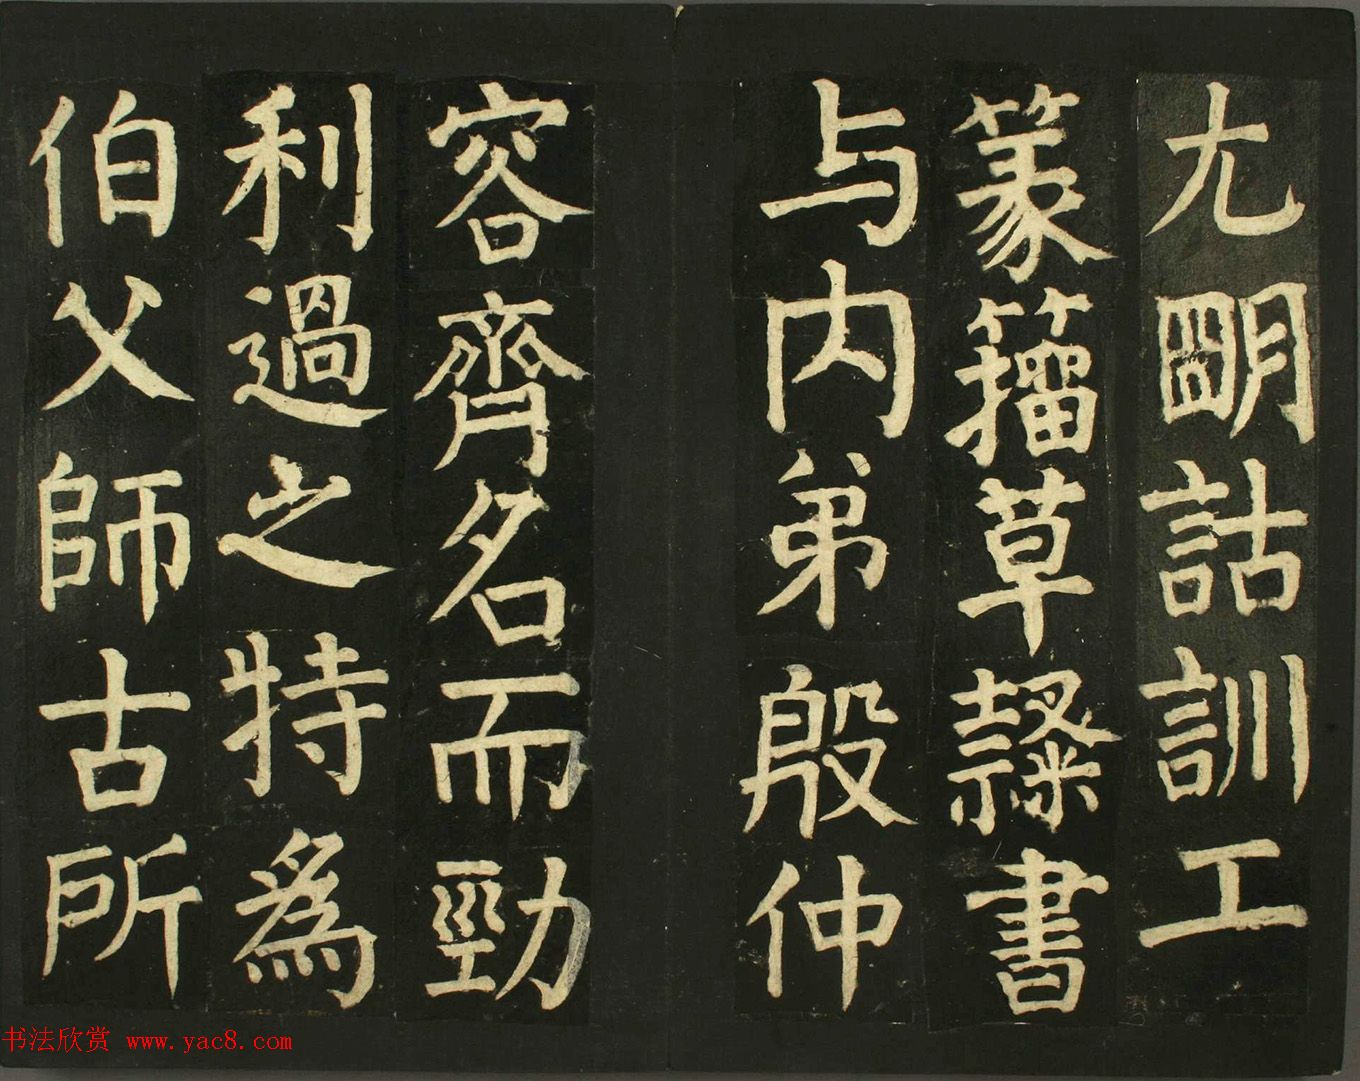 尤明詁訓工
篆籀草隸書
与内弟殷仲
容齊名而勁
利過之特為
伯父師古所
书法欣赏 www.yac8.com